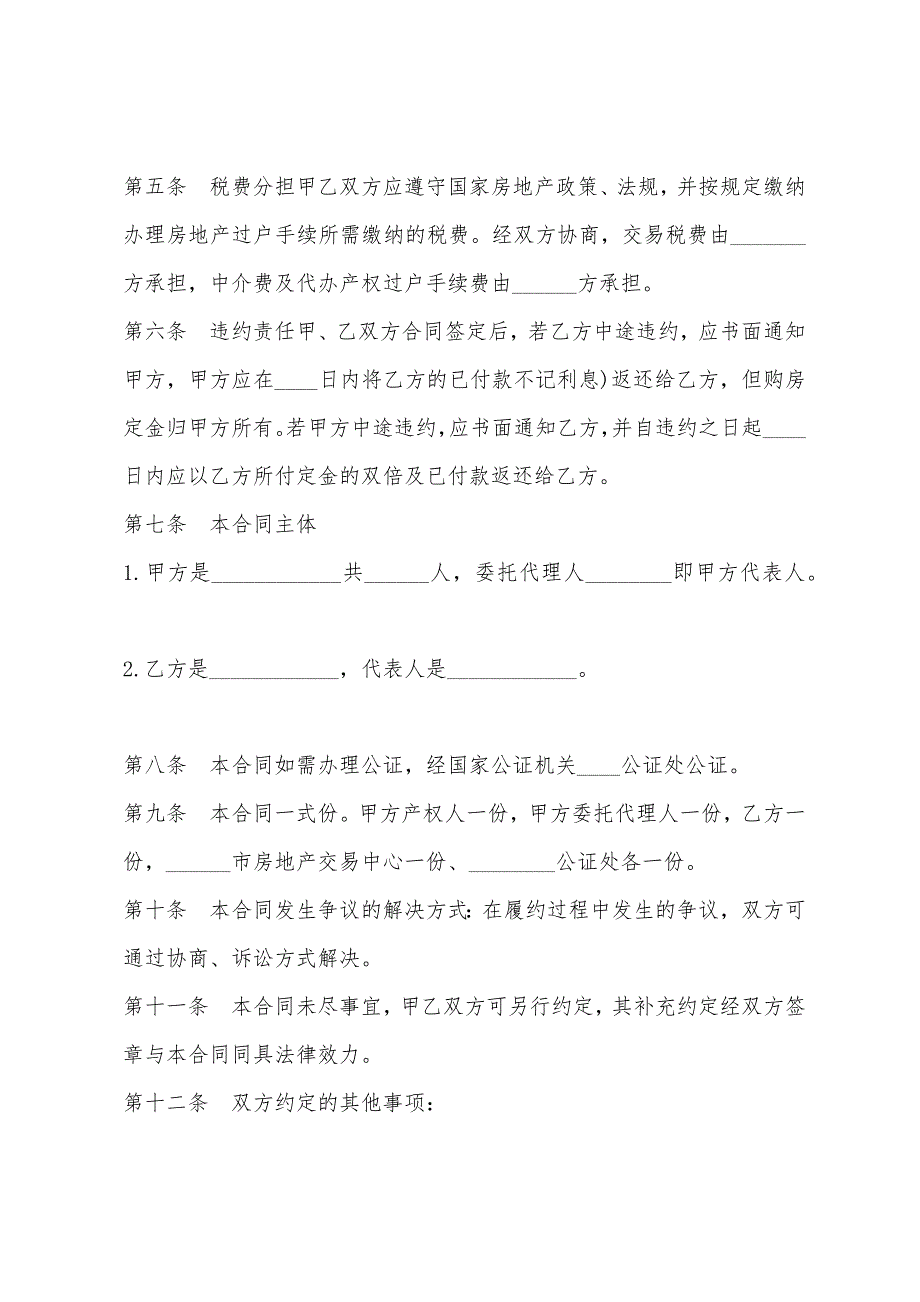 第五条　税费分担甲乙双方应遵守国家房地产政策、法规，并按规定缴纳
办理房地产过户手续所需缴纳的税费。经双方协商，交易税费由_______
方承担，中介费及代办产权过户手续费由______方承担。
第六条　违约责任甲、乙双方合同签定后，若乙方中途违约，应书面通知
甲方，甲方应在____日内将乙方的已付款不记利息)返还给乙方，但购房
定金归甲方所有。若甲方中途违约，应书面通知乙方，并自违约之日起____
日内应以乙方所付定金的双倍及已付款返还给乙方。
第七条　本合同主体
1.甲方是____________共______人，委托代理人________即甲方代表人。
2.乙方是____________，代表人是____________。
第八条　本合同如需办理公证，经国家公证机关____公证处公证。
第九条　本合同一式份。甲方产权人一份，甲方委托代理人一份，乙方一
份，______市房地产交易中心一份、________公证处各一份。
第十条　本合同发生争议的解决方式：在履约过程中发生的争议，双方可
通过协商、诉讼方式解决。
第十一条　本合同未尽事宜，甲乙双方可另行约定，其补充约定经双方签
章与本合同同具法律效力。
第十二条　双方约定的其他事项：